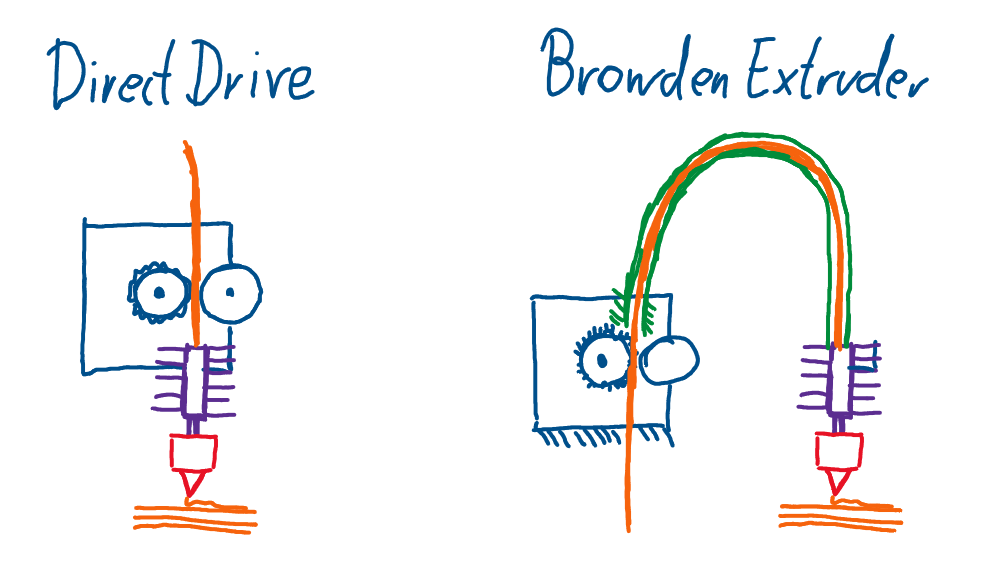 Direct Drive
Browden Extruder